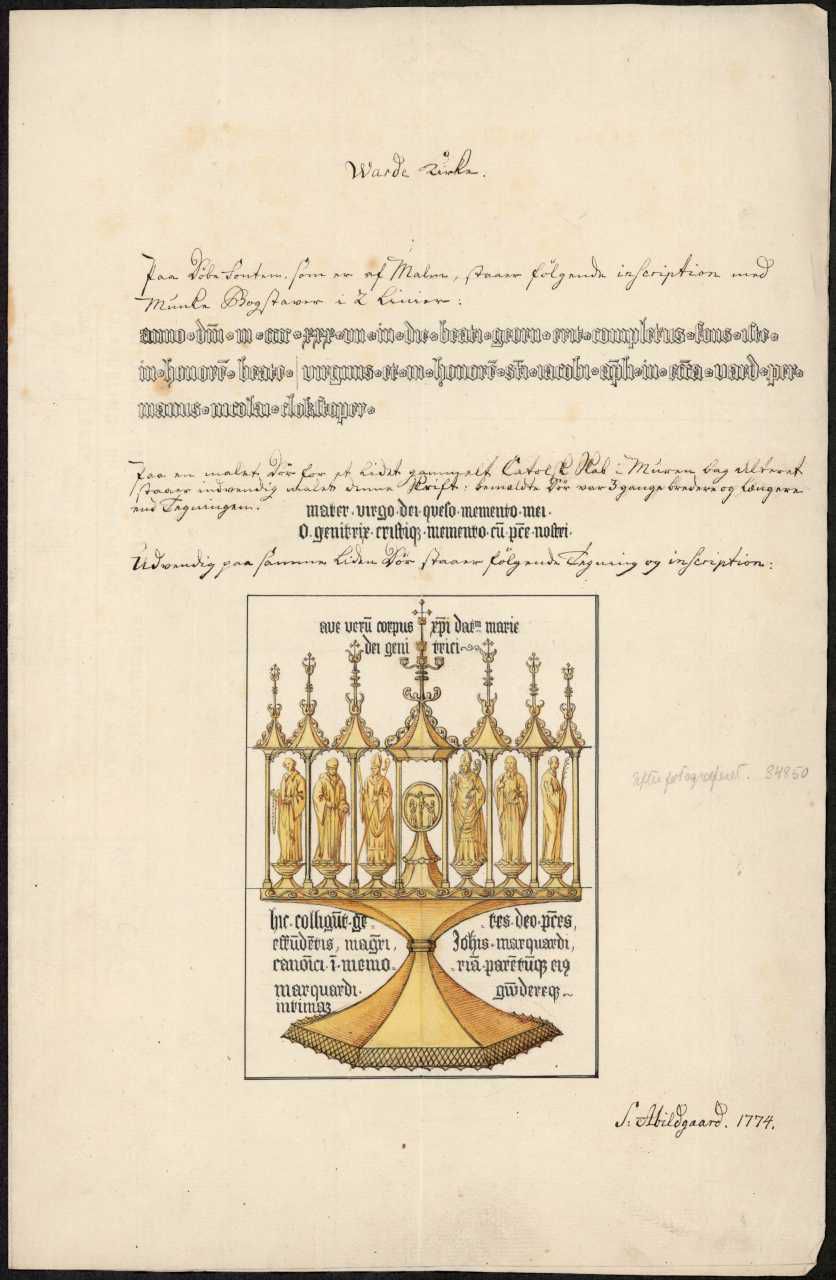 Warde Kirke.
Paa Döbe Fonten. som er af Malm, staaer følgende inscription med
Munke Bogstaver i 2 Linier:
anno · dm̄ · m · ccc · xxx · vii · in · die · beati · georii · erit · completus · fons · iste ·
in · honorē · beate · virginis · et · in · honorē · sti · iacobi · ap̄li · in · ecc̄a · vard · per ·
manus · nicolai · clokstoper ·
Paa en malet Dör for et lidet gammelt Catolsk Skab i Muren bag Alteret
staaer indvendig malet denne Skrift: bemældte Dör var 3 gange bredere og længere
end Tegningen.
mater · virgo · dei · queso · memento · mei ·
O · genitrix · cristiq; · memento · cū · pr̄e · nostri ·
Udvendig paa samme liden Dör staaer følgende Tegning og inscription:
ave verū corpus xp̄i datm marie
dei geni trici
hic · colligūt · ge · tes · deo · pc̄es,
effūdētis, magr̄i, Johis · marquardi,
canoīci · ī · memo · riā · parētūq; eiꝯ
marquardi · gw̄dereq;
intimaz
Efter fotograferet. 34850
S: Abildgaard. 1774.